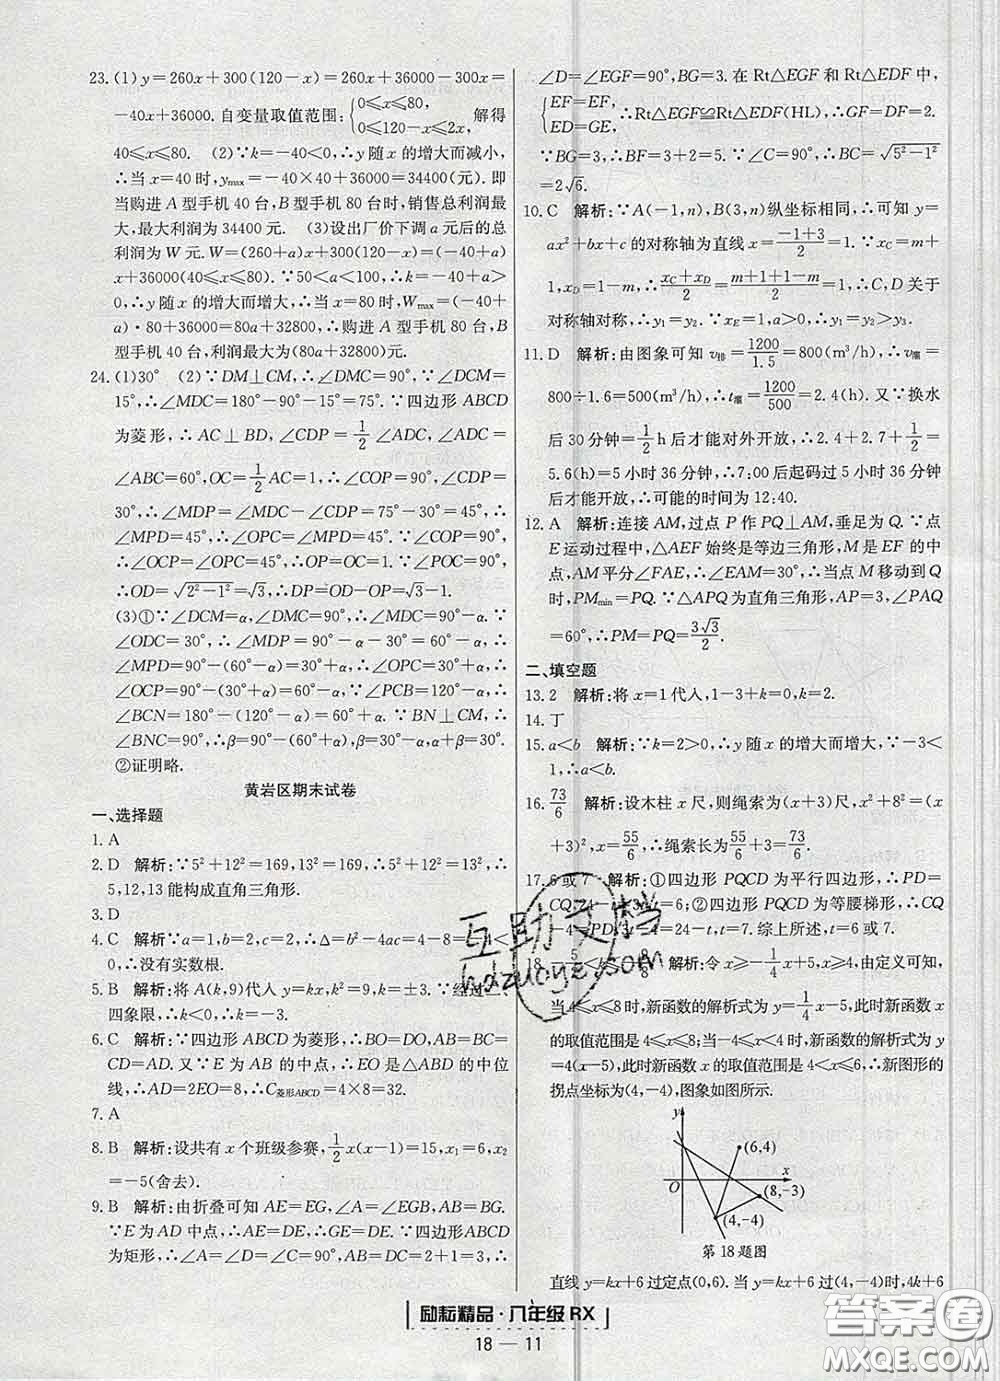 23. (1) y=260x+300(120-x)=260x+36000-300x=
-40x+36000. 自变量取值范围: {0≤x≤80, 0≤120-x≤2x, 解得
40≤x≤80. (2)∵k=-40<0,∴y随x的增大而减小,
∴当x=40时,ymax=-40×40+36000=34400(元). 即
当购进A型手机40台,B型手机80台时,销售总利润最
大,最大利润为34400元. (3)设出厂价下调a元后的总
利润为W元. W=(260+a)x+300(120-x)=(-40+a)
x+36000(40≤x≤80). ∵50<a<100,∴k=-40+a>
0,∴y随x的增大而增大,∴当x=80时,Wmax=(-40+
a)·80+36000=80a+32800,∴购进A型手机80台,B
型手机40台,利润最大为(80a+32800)元.
24. (1)30° (2)∵DM⊥CM,∴∠DMC=90°,∵∠DCM=
15°,∴∠MDC=180°-90°-15°=75°. ∵四边形ABCD
为菱形,∴AC⊥BD,∠CDP=1/2∠ADC,∠ADC=
∠ABC=60°,OC=1/2AC=1,∴∠COP=90°,∠CDP=
30°,∴∠MDP=∠MDC-∠CDP=75°-30°=45°,
∴∠MPD=45°,∴∠OPC=∠MPD=45°. ∵∠COP=90°,
∴∠OCP=∠OPC=45°,∴OP=OC=1. ∵∠POC=90°,
∴OD=√(2²-1²)=√3,∴DP=OD-OP=√3-1.
(3)①∵∠DCM=α,∠DMC=90°,∴∠MDC=90°-α.∵
∠ODC=30°,∴∠MDP=90°-α-30°=60°-α,∴
∠MPD=90°-(60°-α)=30°+α,∴∠OPC=30°+α,∴
∠OCP=90°-(30°+α)=60°-α. ∵∠PCB=120°,∴
∠BCN=180°-(120°-α)=60°+α. ∵BN⊥CM,∴
∠BNC=90°,∴β=90°-(60°+α)=30°-α,∴α+β=30°.
②证明略.
黄岩区期末试卷
一、选择题
1. A
2. D 解析:∵5²+12²=169,13²=169,∴5²+12²=13²,∴
5,12,13能构成直角三角形.
3. D
4. C 解析:∵a=1,b=2,c=2,∴Δ=b²-4ac=4-8=-4<
0,∴没有实数根.
5. B 解析:将A(k,9)代入y=kx,k²=9,k=±3. ∵经过二、
四象限,∴k<0,∴k=-3.
6. C 解析:∵四边形ABCD为菱形,∴BO=DO,AB=BC=
CD=AD. 又∵E为AB的中点,∴EO是△ABD的中位
线,∴AD=2EO=8,∴C菱形ABCD=4×8=32.
7. A
8. B 解析:设共有x个班级参赛,1/2x(x-1)=15,x₁=6,x₂
=-5(舍去).
9. B 解析:由折叠可知AE=EG,∠A=∠EGB,AB=BG.
∵E为AD中点,∴AE=DE,∴GE=DE. ∵四边形ABCD
为矩形,∴∠A=∠D=∠C=90°,AB=DC=2+1=3,∴
∠D=∠EGF=90°,BG=3. 在Rt△EGF和Rt△EDF中,
{EF=EF, ED=GE, ∴Rt△EGF≌Rt△EDF(HL),∴GF=DF=2.
∵BG=3,∴BF=3+2=5. ∵∠C=90°,∴BC=√(5²-1²)
=2√6.
10. C 解析:∵A(-1,n),B(3,n)纵坐标相同,∴可知y=
ax²+bx+c的对称轴为直线x=(-1+3)/2=1. ∵xC=m+
1,xD=1-m,∴(xC+xD)/2=(m+1+1-m)/2=1,∴C,D关于
对称轴对称,∴y₁=y₂. ∵xE=1,a>0,∴y₁=y₂>y₃.
11. D 解析:由图象可知v排=1200/1.5=800(m³/h),∴v灌=
800÷1.6=500(m³/h),∴t灌=1200/500=2.4(h). 又∵换水
后30分钟=1/2h后才能对外开放,∴2.4+2.7+1/2=
5.6(h)=5小时36分钟,∴7:00后起码过5小时36分钟
后才能开放,∴可能的时间为12:40.
12. A 解析:连接AM,过点P作PQ⊥AM,垂足为Q. ∵点
E运动过程中,△AEF始终是等边三角形,M是EF的中
点,AM平分∠FAE,∴∠EAM=30°,∴当点M移动到Q
时,PMmin=PQ. ∵△APQ为直角三角形,AP=3,∠PAQ
=60°,∴PM=PQ=3√3/2.
二、填空题
13. 2 解析:将x=1代入,1-3+k=0,k=2.
14. 丁
15. a<b 解析:∵k=2>0,∴y随x的增大而增大,∵-3<
1,∴a<b.
16. 73/6 解析:设木柱x尺,则绳索为(x+3)尺,x²+8²=(x
+3)²,x=55/6,∴绳索长为55/6+3=73/6.
17. 6或7 解析:①四边形PQCD为平行四边形,∴PD=
CQ,24-t=3t,t=6;②四边形PQCD为等腰梯形,∴CQ
-4=PD,3t-4=24-t,t=7. 综上所述,t=6或7.
18. 解析:令x≥-1/4x+5,由定义可知,
当4≤x≤8时,新函数的解析式为y=1/4x-5,此时新函数x
的取值范围是4≤x≤8;当-4≤x<4时,新函数的解析式为y
=4(x-5),此时新函数x的取值范围是4<x≤6,∴新图形的
拐点坐标为(4,-4),图象如图所示.
y
(6,4)
O
x
(8,-3)
(4,-4)
第18题图
直线y=kx+6过定点(0,6). 当y=kx+6过(4,-4)时,4k+6
励耘精品·八年级RX
18 — 11
互助文档
hdzuoye.com
答案圈
MXQE.COM